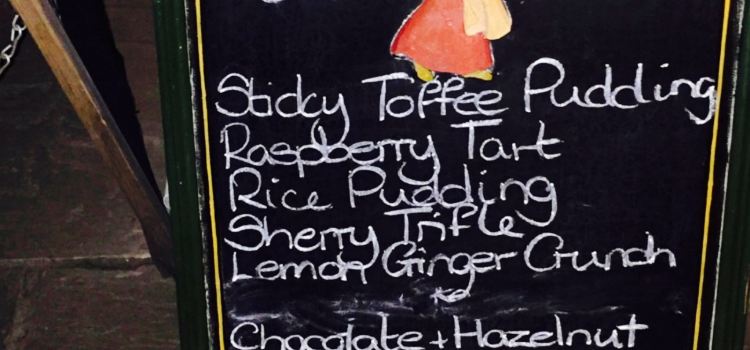 Sticky Toffee Pudding
Raspberry Tart
Rice Pudding
Sherry Trifle
Lemon Ginger Crunch
Chocolate + Hazelnut